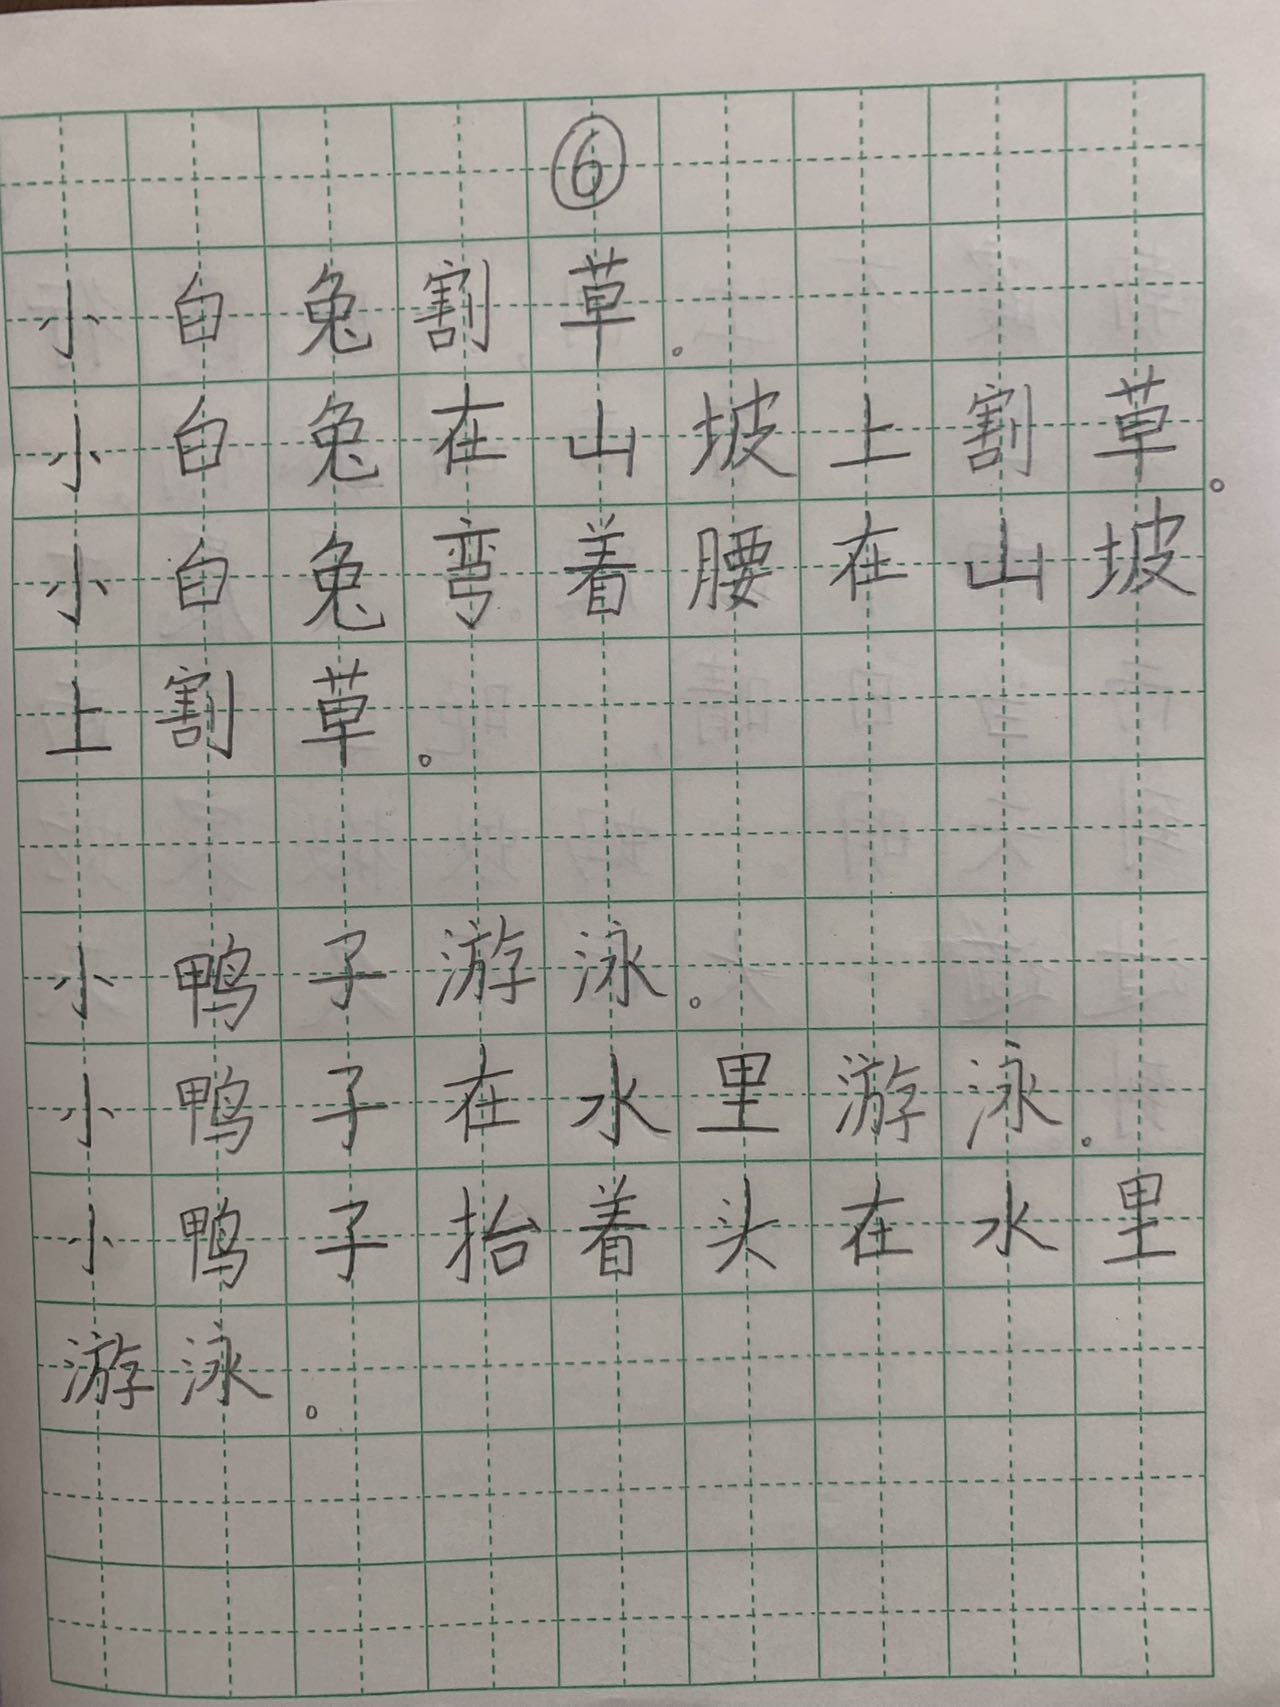 ⑥
小白兔割草。
小白兔在山坡上割草。
小白兔弯着腰在山坡
上割草。
小鸭子游泳。
小鸭子在水里游泳。
小鸭子抬着头在水里
游泳。